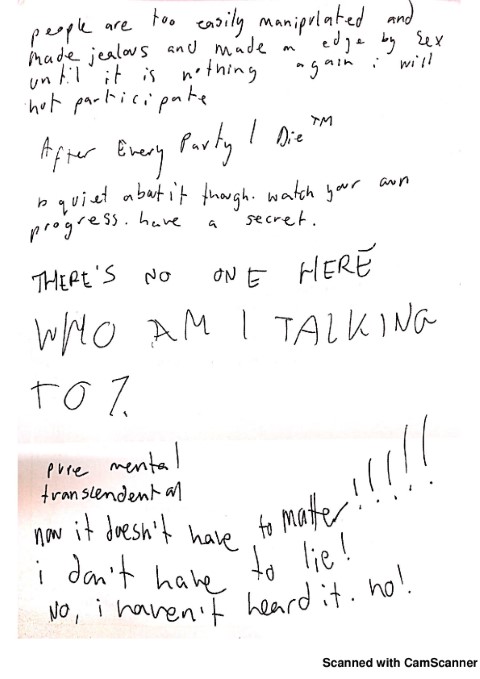 people are too easily manipulated and
made jealous and made on edge by sex
until it is nothing again i will
not participate
After Every Party I Die™
b quiet about it though. watch your own
progress. have a secret.
THERE'S NO ONE HERE
WHO AM I TALKING
TO?
pure mental
transcendental
now it doesn't have to matter!!!!!!
i don't have to lie!
No, i haven't heard it. no!
Scanned with CamScanner